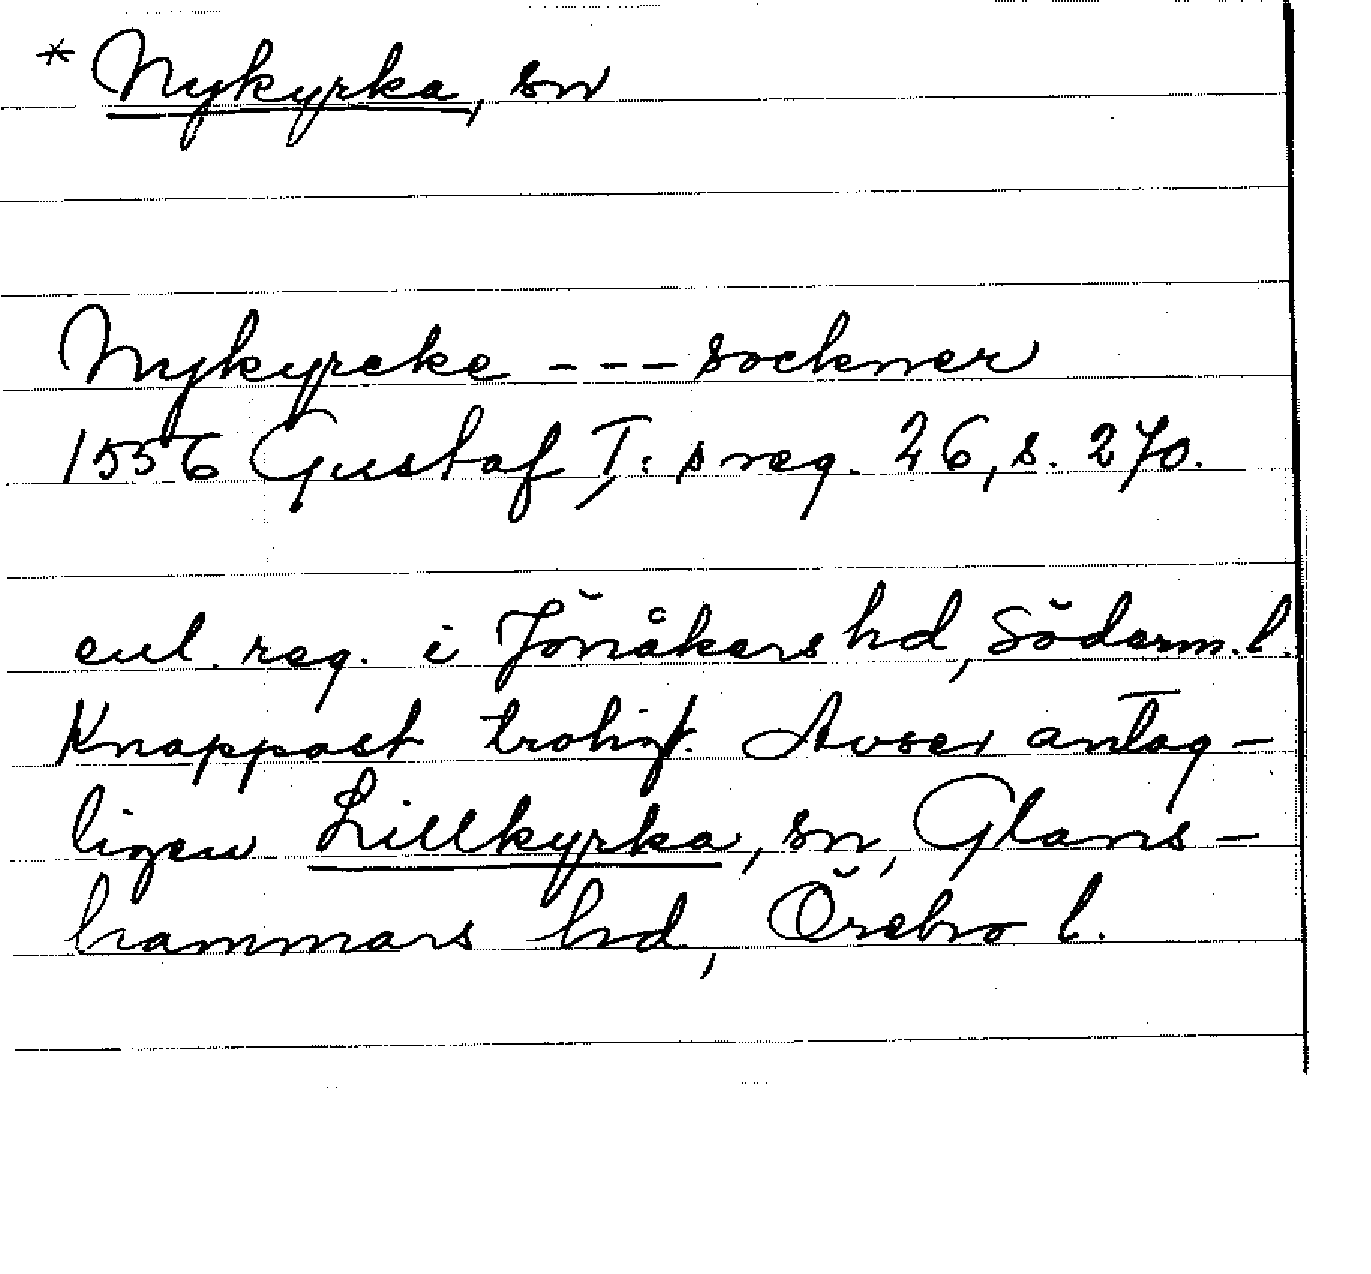 * Nykyrka, sn
Nykyrcke --- sockner
1556 Gustaf I:s reg. 26, s. 270.
enl. reg. i Jönåkers hd, Söderm. l.
Knappast troligt. Avser antag-
ligen Lillkyrka, sn, Glans-
hammars hd, Örebro l.